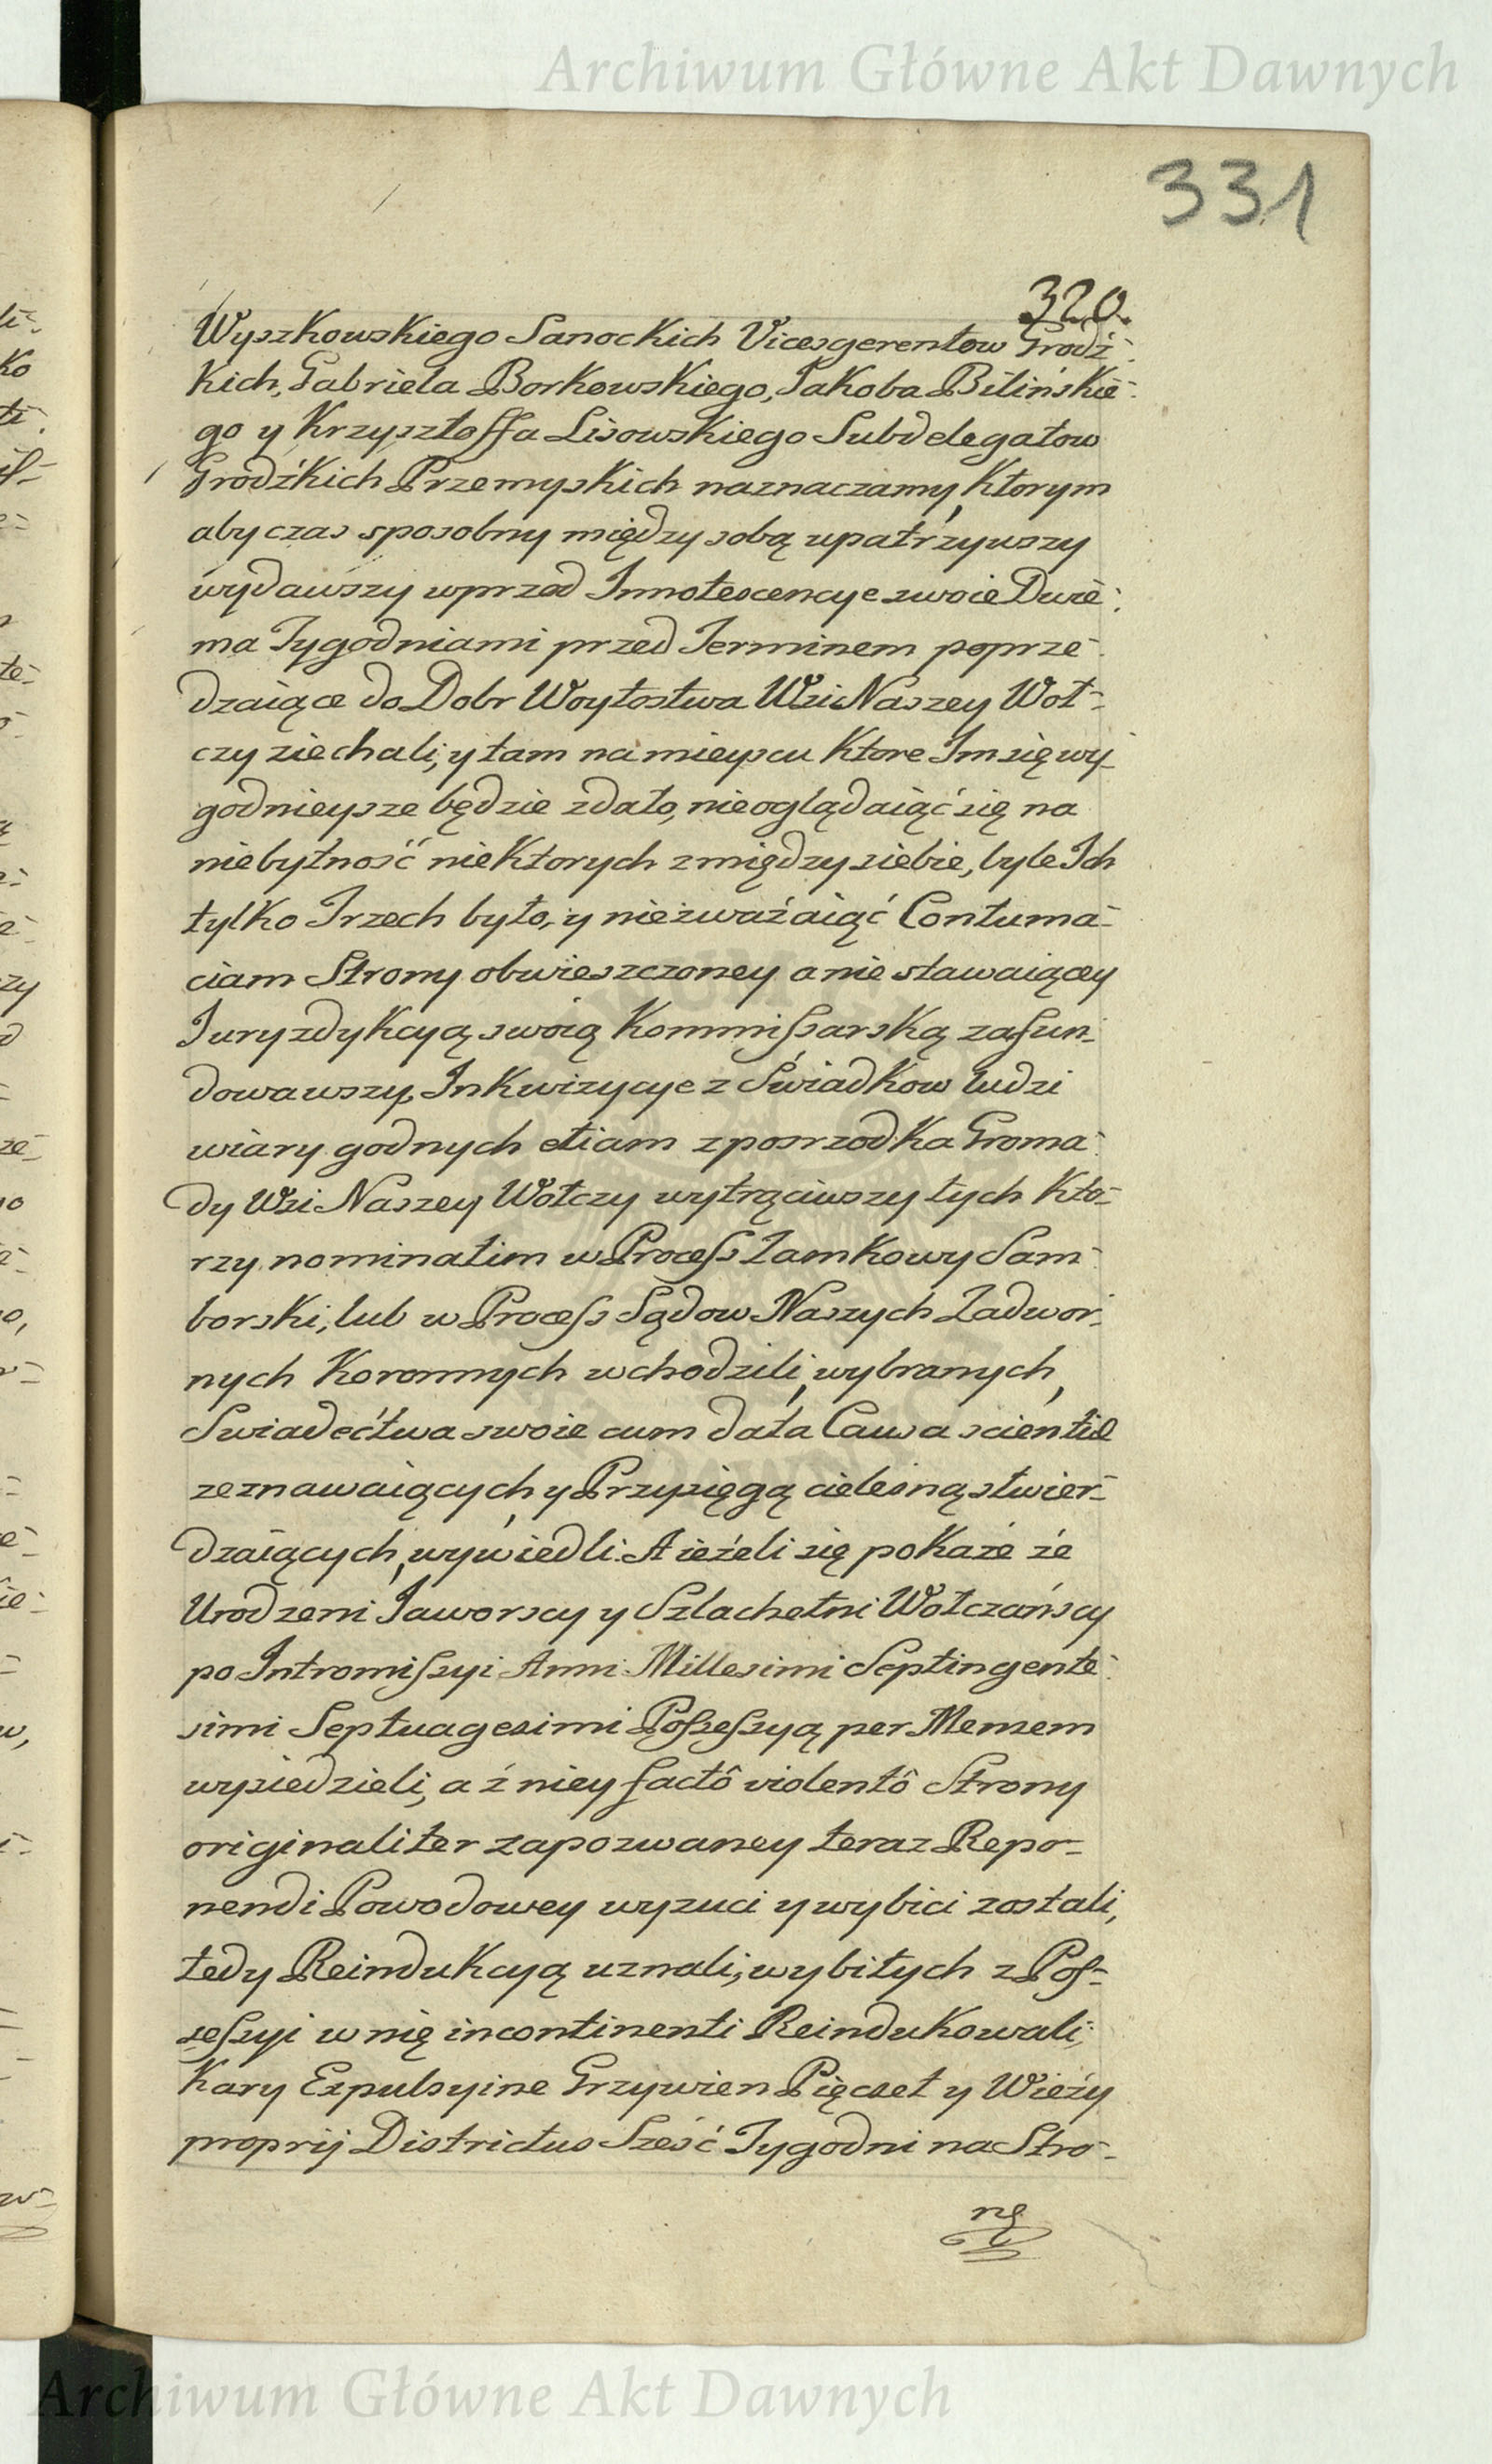 Archiwum Główne Akt Dawnych
331
320.
Wyszkowskiego Sanockich Vicesgerentow Grodź-
kich, Gabriela Borkowskiego, Jakoba Bilińskie-
go y Krzysztoffa Lisowskiego Subdelegatow
Grodźkich Przemyskich naznaczamy, Ktorym
aby czas sposobny między sobą upatrzywszy
wydawszy wprzod Innotescencye swoie Dwie-
ma Tygodniami przed Terminem poprze-
dzaiące do Dobr Woytostwa Wsi Naszey Woł-
czy ziechali, y tam na mieyscu Ktore Im się wy-
godnieysze będzie zdało, nieoglądaiąć się na
niebytność niektorych z między siebie, byle Ich
tylko Trzech było, y niezważaiąć Contuma-
ciam Strony obwieszczoney a nie stawaiącey
Juryzdykcyą swoią Kommissarską zafun-
dowawszy, Inkwizycye z Swiadkow ludzi
wiary godnych etiam z posrzodka Groma-
dy Wsi Naszey Wołczy wytrąciwszy tych Kto-
rzy nominatim w Process Zamkowy Sam-
borski, lub w Process Sądow Naszych Zadwor-
nych Koronnych wchodzili, wybranych,
Swiadectwa swoie cum data Causa scientiæ
zeznawaiących, y Przysięgą cielesną stwier-
dzaiących, wywiedli. A ieżeli się pokaże że
Urodzeni Jaworscy y Szlachetni Wołczańscy
po Intromissyi Anni Millesimi Septingente-
simi Septuagesimi Possessyą per Mensem
wysiedzieli, a z niey factô violentô Strony
originaliter zapozwaney teraz Repo-
nendi Powodowey wyzuci y wybici zostali,
tedy Reindukcyą uznali, wybitych z Pos-
sessyi w nię incontinenti Reindukowali,
Kary Expulsyine Grzywien Pięcset y Wieży
proprij Districtus Sześć Tygodni na Stro-
nę
Archiwum Główne Akt Dawnych